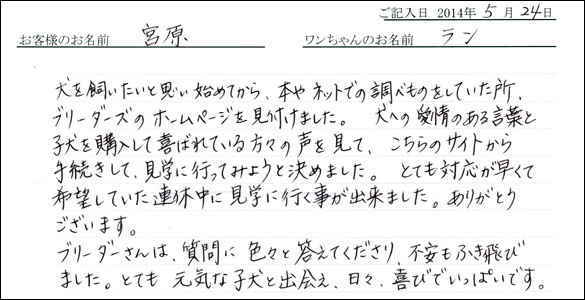 ご記入日 2014年 5月24日
お客様のお名前 宮原 ワンちゃんのお名前 ラン
犬を飼いたいと思い始めてから、本やネットでの調べものをしていた所、
ブリーダーズのホームページを見付けました。 犬への愛情のある言葉と
子犬を購入して喜ばれている方々の声を見て、こちらのサイトから
手続きして、見学に行ってみようと決めました。 とても対応が早くて
希望していた連休中に見学に行く事が出来ました。ありがとう
ございます。
ブリーダーさんは、質問に色々と答えてくださり、不安もふき飛び
ました。とても 元気な子犬と出会え、日々、喜びでいっぱいです。